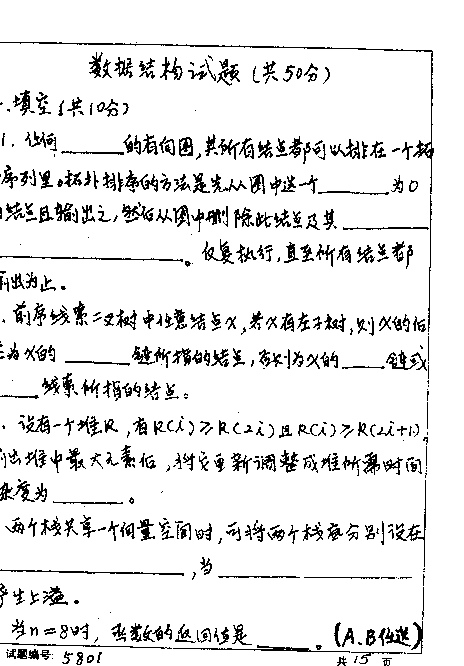 数据结构试题(共50分)
.填空(共10分)
1.任何______的有向图,其所有结点都可以排在一个拓
序列里。拓扑排序的方法是先从图中选一个______为0
结点且输出之,然后从图中删除此结点及其______
______。反复执行,直至所有结点都
输出为止。
.前序线索二叉树中任意结点X,若X有左子树,则X的后
为X的______链所指的结点,否则为X的____链或
____线索所指的结点。
.设有一个堆R,有R(i)≥R(2i)且R(i)≥R(2i+1),
输出堆中最大元素后,将它重新调整成堆所需时间
杂度为______。
.两个栈共享一个向量空间时,可将两个栈底分别设在
______,当______
产生上溢。
当n=8时,函数的返回值是______。(A.B任选)
试题编号:5801
共15页